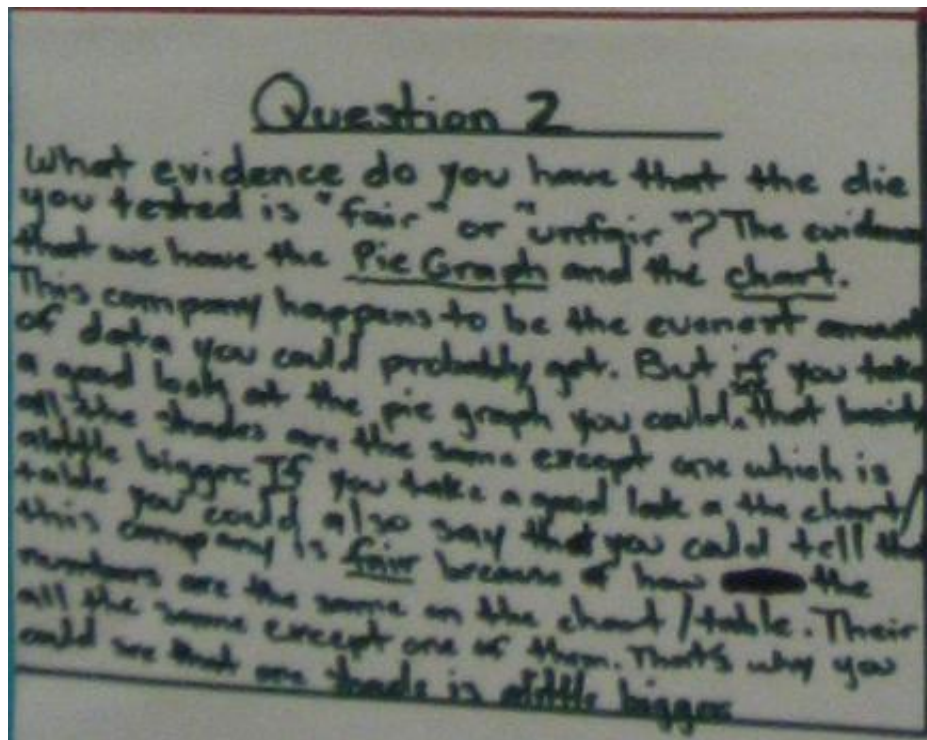 Question 2
What evidence do you have that the die
you tested is "fair" or "unfair"? The evidence
that we have the Pie Graph and the chart.
This company happens to be the evenest amount
of data you could probably get. But if you take
a good look at the pie graph you could that
all the shades are the same except one which is
alittle bigger. If you take a good look a the chart/
table you could also say that you could tell
this company is fair because of how the
numbers are the same on the chart/table. Their
all the same except one of them. That's why you
could see that one shade is alittle bigger